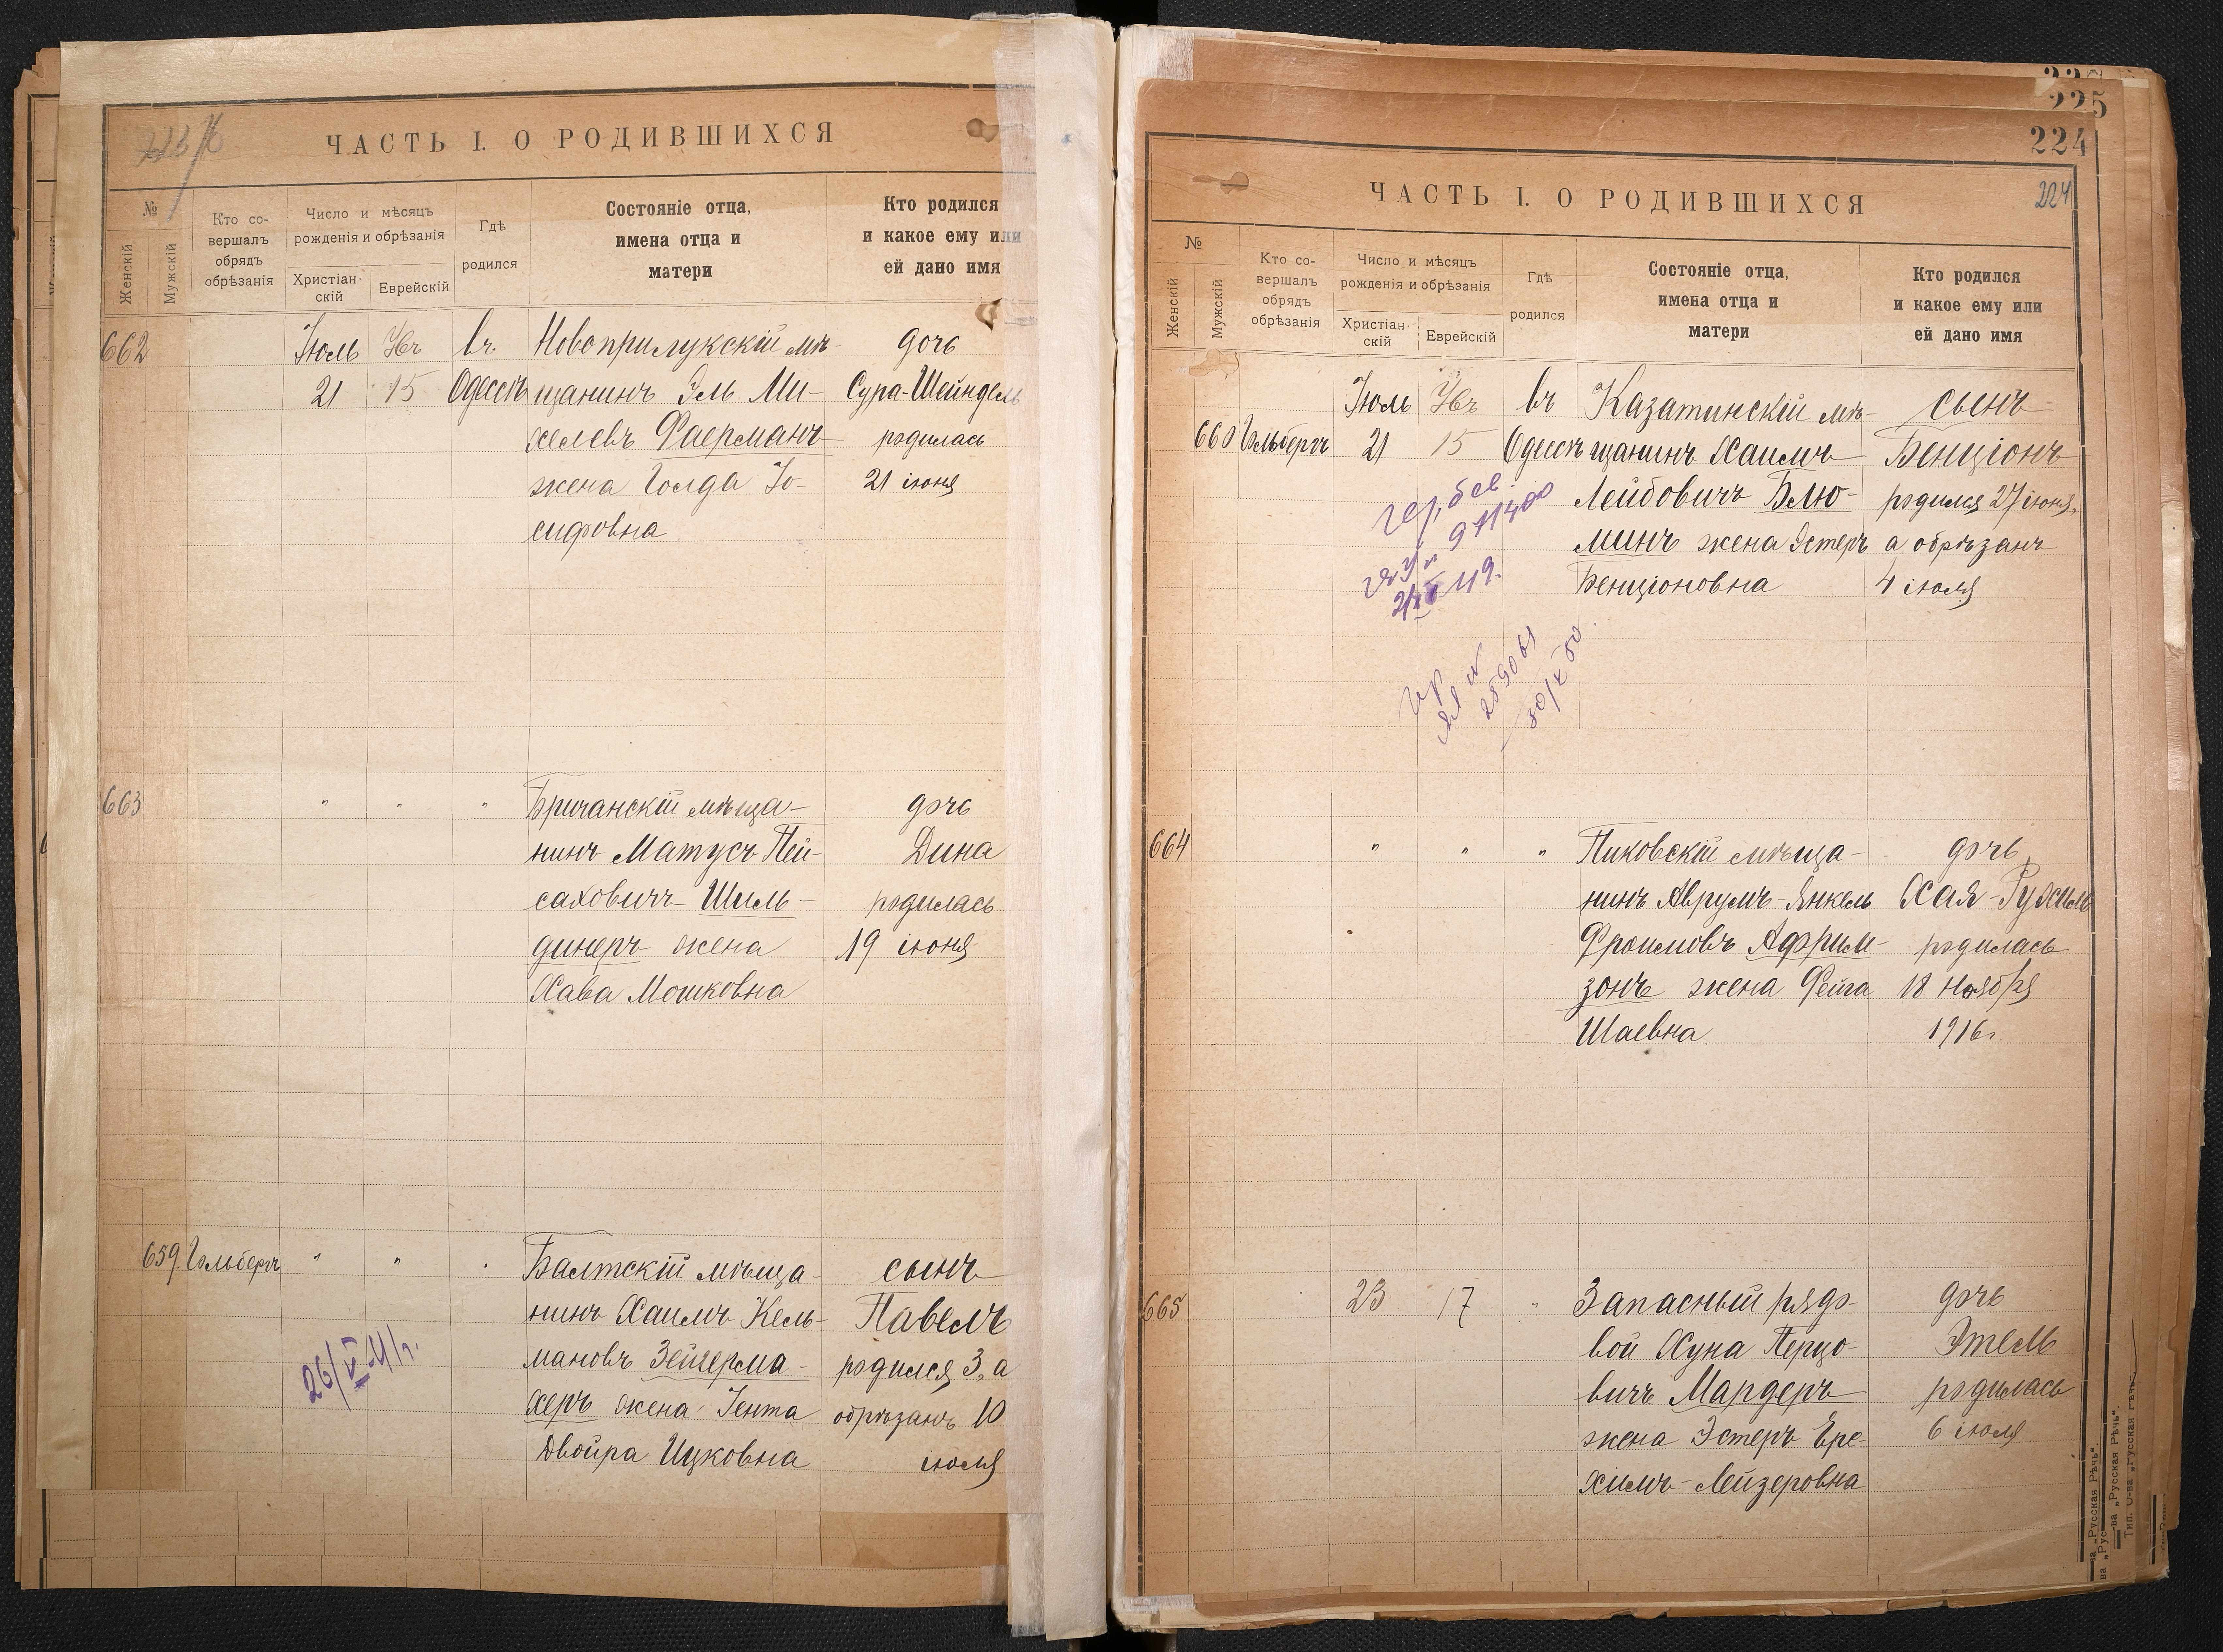 ЧАСТЬ I. О РОДИВШИХСЯ
№
Женскій
Мужскій
Кто со-
вершалъ
обрядъ
обрѣзанія
Число и мѣсяцъ
рожденія и обрѣзанія
Христіан-
скій
Еврейскій
Гдѣ
родился
Состояніе отца,
имена отца и
матери
Кто родился
и какое ему или
ей дано имя
662
Іюль
21
15
въ
Одессѣ
Новоприлукскій мѣ-
щанинъ Эль Ми-
хелевъ Фаерманъ
жена Голда Іо-
сифовна
дочь
Сура-Шейндель
родилась
21 іюня
663
" " "
Бричанскій мѣща-
нинъ Матусъ Пей-
саховичъ Шиль-
динеръ жена
Хава Мошковна
дочь
Дина
родилась
19 іюня
659. Гольбергъ
" " "
Балтскій мѣща-
нинъ Хаимъ Кель-
мановъ Зейгерма-
херъ жена Гента
Двойра Ицковна
сынъ
Павелъ
родился 3, а
обрѣзанъ 10
іюля
224
225
224
ЧАСТЬ I. О РОДИВШИХСЯ
№
Женскій
Мужскій
Кто со-
вершалъ
обрядъ
обрѣзанія
Число и мѣсяцъ
рожденія и обрѣзанія
Христіан-
скій
Еврейскій
Гдѣ
родился
Состояніе отца,
имена отца и
матери
Кто родился
и какое ему или
ей дано имя
660 Гольбергъ
Іюль
21
15
въ
Одессѣ
Казатинскій мѣ-
щанинъ Хаимъ
Лейбовичъ Блю-
минъ жена Эстеръ
Бенціоновна
сынъ
Бенціонъ
родился 27 іюня,
а обрѣзанъ
4 іюля
664
" " "
Пиковскій мѣща-
нинъ Аврумъ-Янкель
Фроимовъ Африм-
зонъ жена Фейга
Шаевна
дочь
Хая-Рухиль
родилась
18 ноября
1916 г.
665
23
17
"
Запасный рядо-
вой Хуна Перцо-
вичъ Мардеръ
жена Эстеръ Ере-
химъ-Лейзеровна
дочь
Этель
родилась
6 іюля